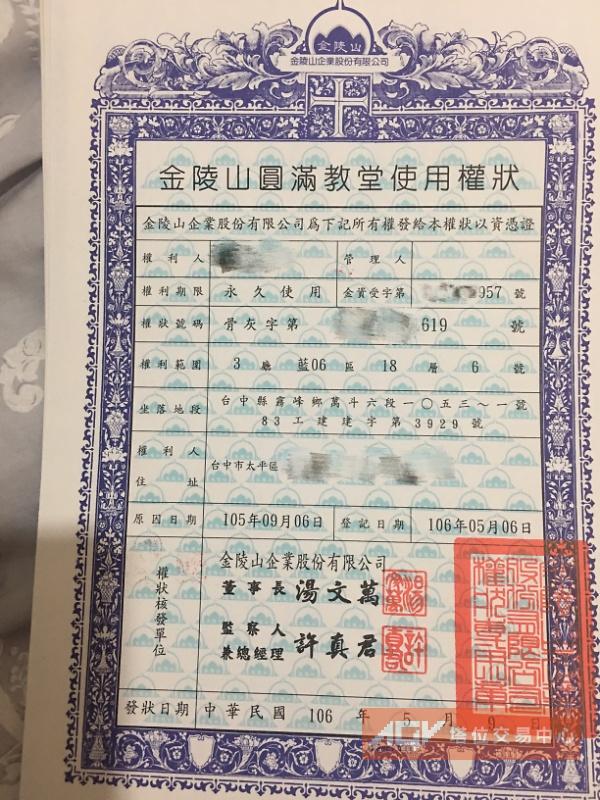 金陵山
金陵山企業股份有限公司
金陵山圓滿教堂使用權狀
金陵山企業股份有限公司為下記所有權發給本權狀以資憑證
權利人 管理人
權利期限 永久使用 金資受字第 957 號
權狀號碼 骨灰字第 619 號
權利範圍 3 廳 藍06 區 18 層 6 號
坐落地段 台中縣霧峰鄉萬斗六段一〇五三~一號
83工建建字第3929號
權利人
住址 台中市太平區
原因日期 105年09月06日 登記日期 106年05月06日
權狀核發單位
金陵山企業股份有限公司
董事長 湯文萬
監察人
兼總經理 許真君
發狀日期 中華民國 106 年 5 月 9 日
塔位交易中心